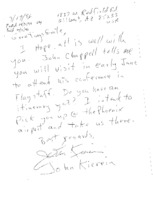 I hope all is well with
you. John Chappell tells me
you will visit in early June
to attend his conference in
Flagstaff. Do you have an
itinerary yet? I intend to
pick you up @ the Phoenix
airport and take us there.
Best regards,
John Kierein
John Kierein